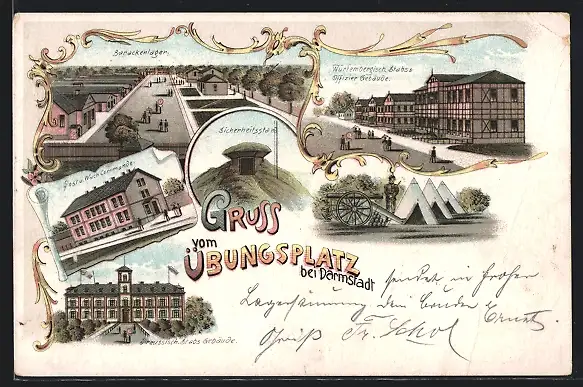 Barackenlager.
Würtembergisch. Stabs
Offizier Gebäude.
Sicherheitsstand
Post u. Wach Commando.
GRUSS
vom
ÜBUNGSPLATZ
bei Darmstadt
Preussisch. Stabs Gebäude.
sendet in froher
dein Bruder
Ernst